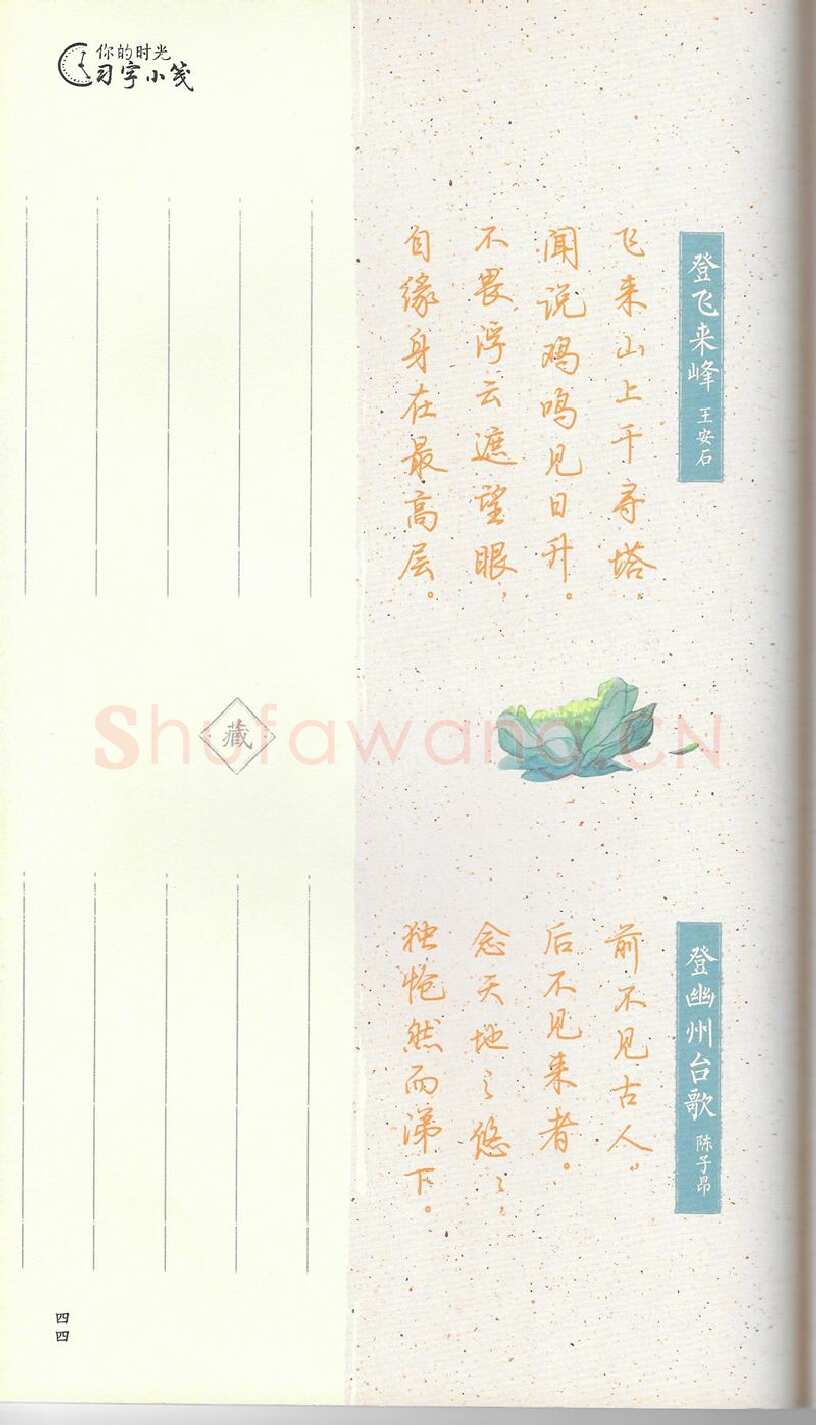 你的时光
习字小笺
登飞来峰 王安石
飞来山上千寻塔，
闻说鸡鸣见日升。
不畏浮云遮望眼，
自缘身在最高层。
登幽州台歌 陈子昂
前不见古人，
后不见来者。
念天地之悠々，
独怆然而涕下。
藏
Shufawang.CN
四四